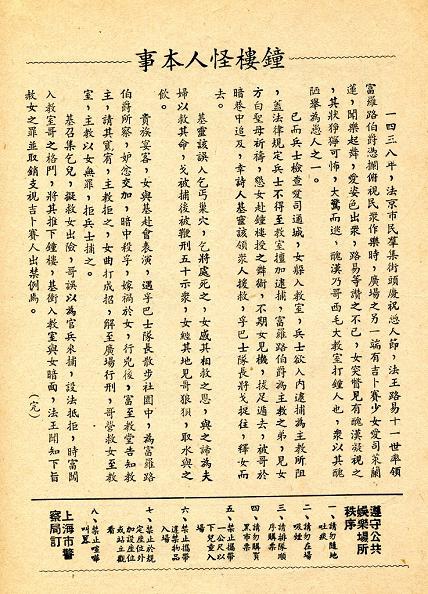 鐘樓怪人本事
一四三八年，法京市民羣集街頭慶祝愚人節，法王路易十一世率領
富羅路伯爵憑欄俯視民眾作樂時，廣場之另一端有吉卜賽少女愛司萊蘭
達，聞樂起舞，愛姿色出眾，路易等讚之不已，女突瞥見有醜漢凝視之
，其狀猙獰可怖，大驚而逃，醜漢乃哥西毛大教堂打鐘人也，眾以其醜
陋舉為愚人之一。
已而兵士檢查愛司通城，女躲入教室，兵士欲入內逮捕為主教所阻
，蓋法律規定兵士不得至教室擅加逮捕，富羅路伯爵為主教之弟，見女
方白聖母祈禱，懇女赴鐘樓授之舞術，不期女見機，拔足過去，被哥於
暗巷中追及，幸詩人基靈該領眾人援救，孚巴士隊長將戈捉住，釋女而
去。
基靈該誤入乞丐巢穴，乞將處死之，女感其相救之恩，與之諦為夫
婦以救其命，戈被捕後被鞭刑五十示眾，女經其地見哥狼狽，取水與之
飲。
貴族宴客，女與基赴會表演，遇孚巴士隊長散步社園中，為富羅路
伯爵所察，妒忿交加，暗中殺孚，嫁禍於女，行兇後，富至教堂告知教
主，請其寬宥，主教拒之，女曲打成招，解至廣場行刑，哥營救女至教
室，主教以女無罪，拒兵士捕之。
基召集乞兒，擬救女出險，哥誤以為官兵來捕，設法抵拒，時富闖
入教室哥之格鬥，將其推下鐘樓，基衝入教室與女晤面，法王聞知下旨
赦女之罪並取銷支視吉卜賽人出禁例焉。
（完）
遵守公共
娛樂場所
秩序
一、請勿隨地
吐痰
二、請勿在場
吸煙
三、請排隊順
序購票
四、請勿購買
黑市票
五、禁止攜帶
一公尺以
下兒童入
場
六、禁止攜帶
違禁物品
入場
七、禁止於規
定座位外
加設座位
或站立觀
看
八、禁止喧嘩
叫囂
上海市警
察局訂